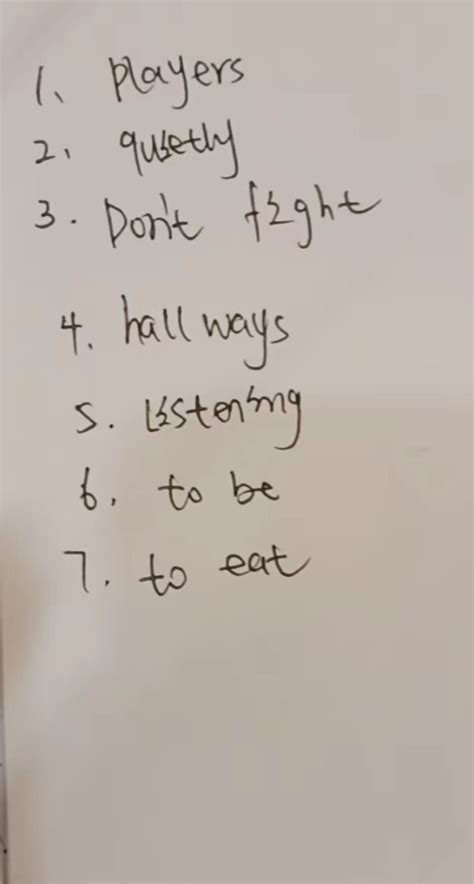 1、players
2、quietly
3. Don't fight
4. hallways
5. listening
6. to be
7. to eat